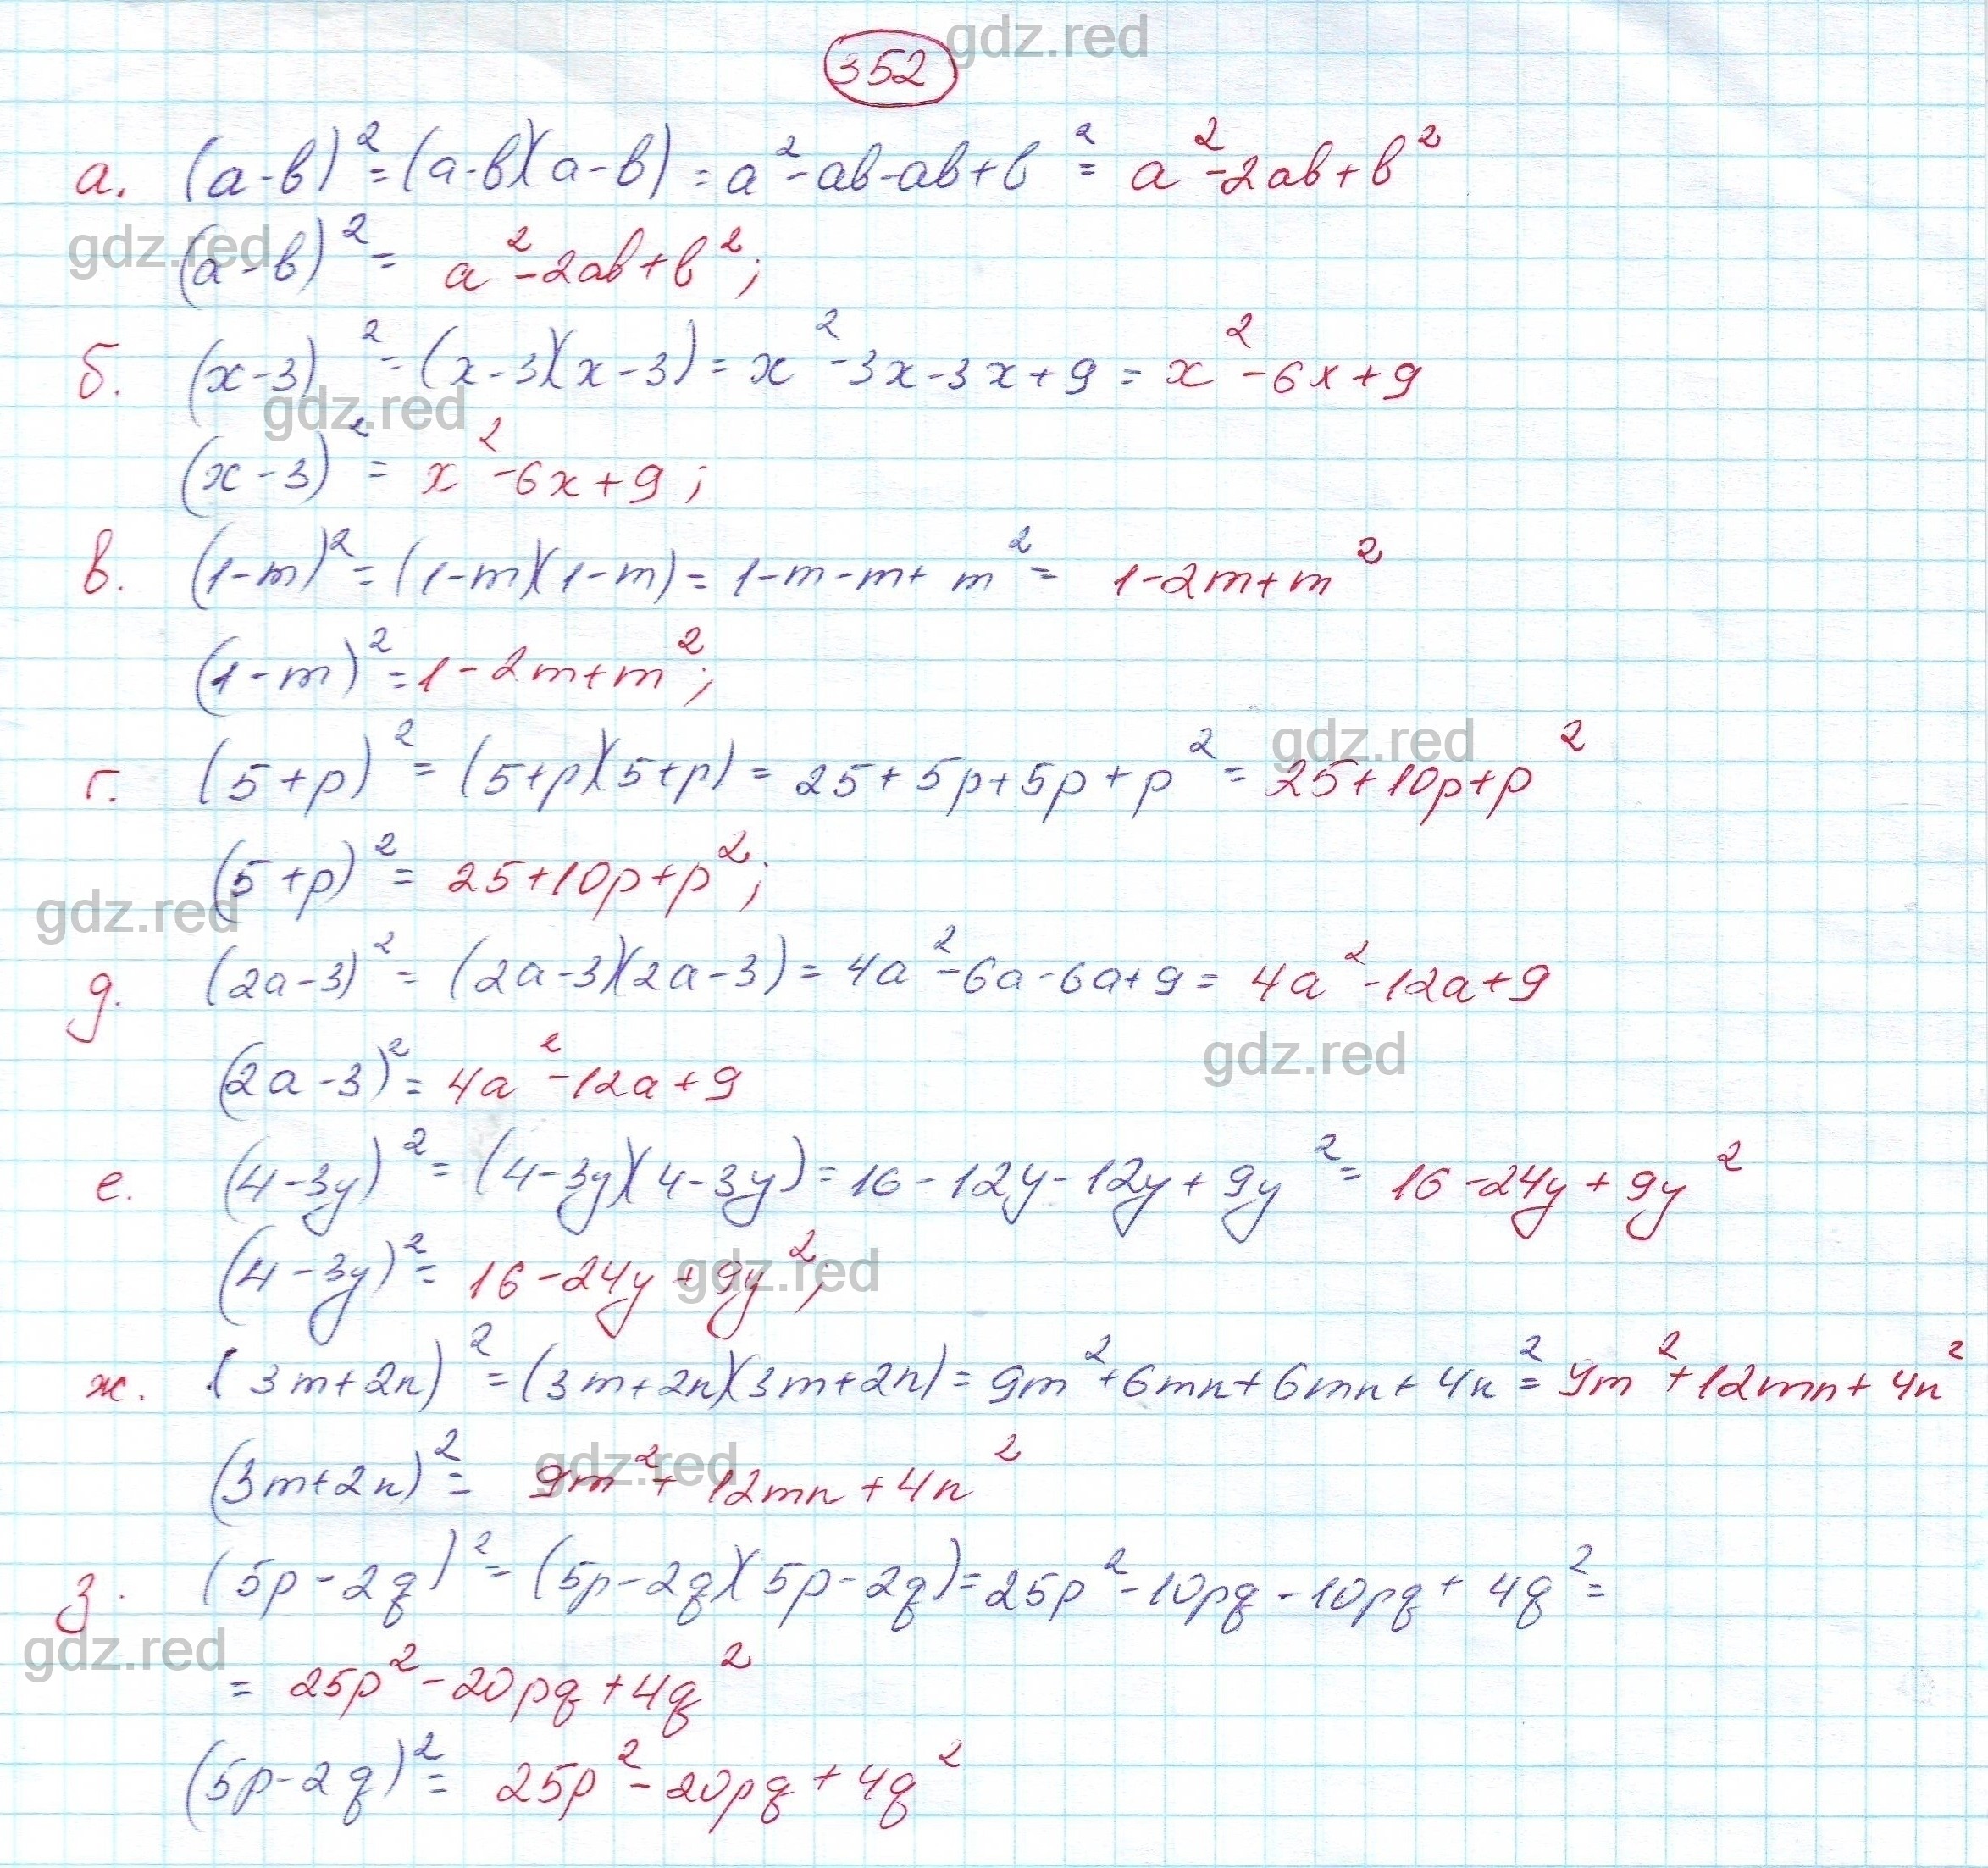 352
gdz.red
а. (a-b)² = (a-b)(a-b) = a²-ab-ab+b² = a²-2ab+b²
gdz.red
(a-b)² = a²-2ab+b²;
б. (x-3)² = (x-3)(x-3) = x²-3x-3x+9 = x²-6x+9
gdz.red
(x-3)² = x²-6x+9;
в. (1-m)² = (1-m)(1-m) = 1-m-m+m² = 1-2m+m²
(1-m)² = 1-2m+m²;
gdz.red
г. (5+p)² = (5+p)(5+p) = 25+5p+5p+p² = 25+10p+p²
(5+p)² = 25+10p+p²;
gdz.red
д. (2a-3)² = (2a-3)(2a-3) = 4a²-6a-6a+9 = 4a²-12a+9
gdz.red
(2a-3)² = 4a²-12a+9
е. (4-3y)² = (4-3y)(4-3y) = 16-12y-12y+9y² = 16-24y+9y²
(4-3y)² = 16-24y+9y²;
gdz.red
ж. (3m+2n)² = (3m+2n)(3m+2n) = 9m²+6mn+6mn+4n² = 9m²+12mn+4n²
gdz.red
(3m+2n)² = 9m²+12mn+4n²
з. (5p-2q)² = (5p-2q)(5p-2q) = 25p²-10pq-10pq+4q² =
gdz.red
= 25p²-20pq+4q²
(5p-2q)² = 25p²-20pq+4q²